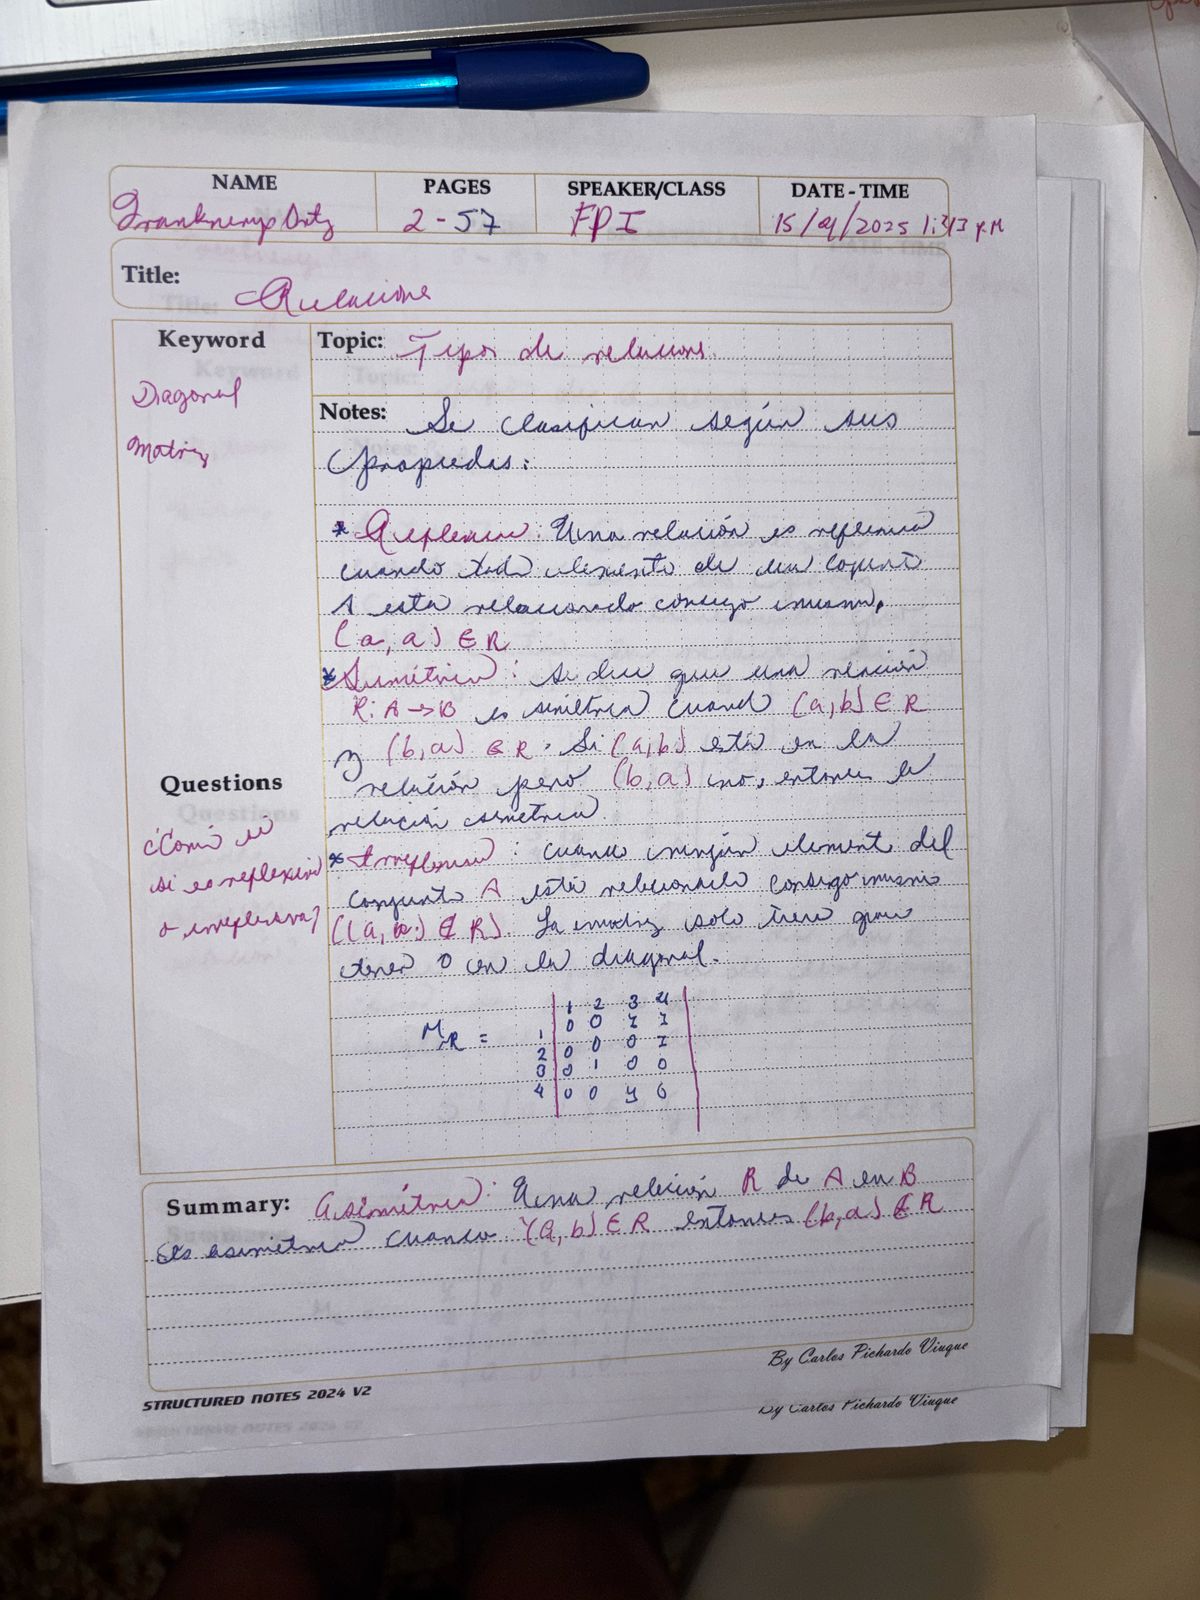 NAME
PAGES
SPEAKER/CLASS
DATE - TIME
2 - 57
FPI
15/ /2025 1:43 PM
Title:
Relacione
Keyword
Diagonal
Matriz
Topic: Tipos de relaciones.
Notes: Se clasifican según sus
propiedas:
* Reflexiva: Una relación es reflexiva
cuando todo elemento de un conjunto
A esta relacionado consigo mismo.
(a, a) ∈ R
* Simétrica: Se dice que una relación
R: A → B es simétrica cuand (a, b) ∈ R
y (b, a) ∈ R. Si (a, b) está en la
relación pero (b, a) no, entonces la
relación asimétrica.
Questions
¿Como sé
si es reflexiva
o irreflexiva?
* Irreflexiva: cuando ningún element del
conjunto A está relacionado consigo mismo
((a, ) ∉ R). La matriz solo tiene que
tener 0 en la diagonal.
1 2 3 4
M_R =
1 0 0 1 1
2 0 0 0 1
3 0 1 0 0
4 0 0 1 0
Summary: Asimétrica: Una relación R de A en B
es asimétrica cuando (a, b) ∈ R entonces (b, a) ∉ R
By Carlos Pichardo Viuque
STRUCTURED NOTES 2024 V2
By Carlos Pichardo Viuque